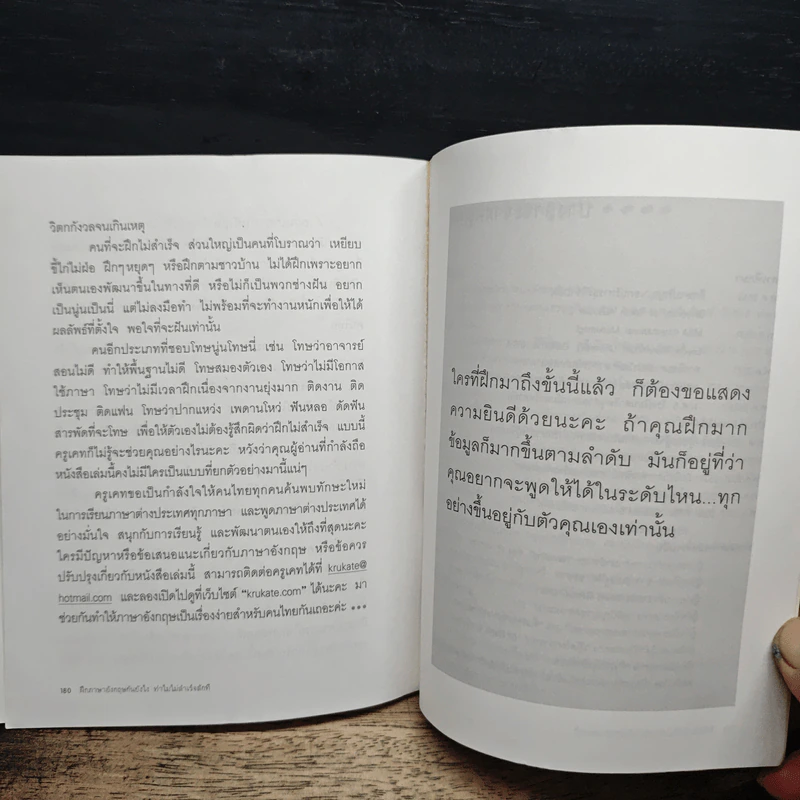 วิตกกังวลจนเกินเหตุ
คนที่จะฝึกไม่สำเร็จ ส่วนใหญ่เป็นคนที่โบราณว่า เหยียบ
ขี้ไก่ไม่ฝ่อ ฝึกๆหยุดๆ หรือฝึกตามชาวบ้าน ไม่ได้ฝึกเพราะอยาก
เห็นตนเองพัฒนาขึ้นในทางที่ดี หรือไม่ก็เป็นพวกช่างฝัน อยาก
เป็นนู่นเป็นนี่ แต่ไม่ลงมือทำ ไม่พร้อมที่จะทำงานหนักเพื่อให้ได้
ผลลัพธ์ที่ตั้งใจ พอใจที่จะฝันเท่านั้น
คนอีกประเภทที่ชอบโทษนู่นโทษนี่ เช่น โทษว่าอาจารย์
สอนไม่ดี ทำให้พื้นฐานไม่ดี โทษสมองตัวเอง โทษว่าไม่มีโอกาส
ใช้ภาษา โทษว่าไม่มีเวลาฝึกเนื่องจากงานยุ่งมาก ติดงาน ติด
ประชุม ติดแฟน โทษว่าปากแหว่ง เพดานโหว่ ฟันหลอ ดัดฟัน
สารพัดที่จะโทษ เพื่อให้ตัวเองไม่ต้องรู้สึกผิดว่าฝึกไม่สำเร็จ แบบนี้
ครูเคทก็ไม่รู้จะช่วยคุณอย่างไรนะคะ หวังว่าคุณผู้อ่านที่กำลังถือ
หนังสือเล่มนี้คงไม่มีใครเป็นแบบที่ยกตัวอย่างมานี้แน่ๆ
ครูเคทขอเป็นกำลังใจให้คนไทยทุกคนค้นพบทักษะใหม่
ในการเรียนภาษาต่างประเทศทุกภาษา และพูดภาษาต่างประเทศได้
อย่างมั่นใจ สนุกกับการเรียนรู้ และพัฒนาตนเองให้ถึงที่สุดนะคะ
ใครมีปัญหาหรือข้อเสนอแนะเกี่ยวกับภาษาอังกฤษ หรือข้อควร
ปรับปรุงเกี่ยวกับหนังสือเล่มนี้ สามารถติดต่อครูเคทได้ที่ krukate@
hotmail.com และลองเปิดไปดูที่เว็บไซต์ "krukate.com" ได้นะคะ มา
ช่วยกันทำให้ภาษาอังกฤษเป็นเรื่องง่ายสำหรับคนไทยกันเถอะค่ะ •••
180 ฝึกภาษาอังกฤษกันยังไง ทำไมไม่สำเร็จสักที
ใครที่ฝึกมาถึงขั้นนี้แล้ว ก็ต้องขอแสดง
ความยินดีด้วยนะคะ ถ้าคุณฝึกมาก
ข้อมูลก็มากขึ้นตามลำดับ มันก็อยู่ที่ว่า
คุณอยากจะพูดให้ได้ในระดับไหน...ทุก
อย่างขึ้นอยู่กับตัวคุณเองเท่านั้น